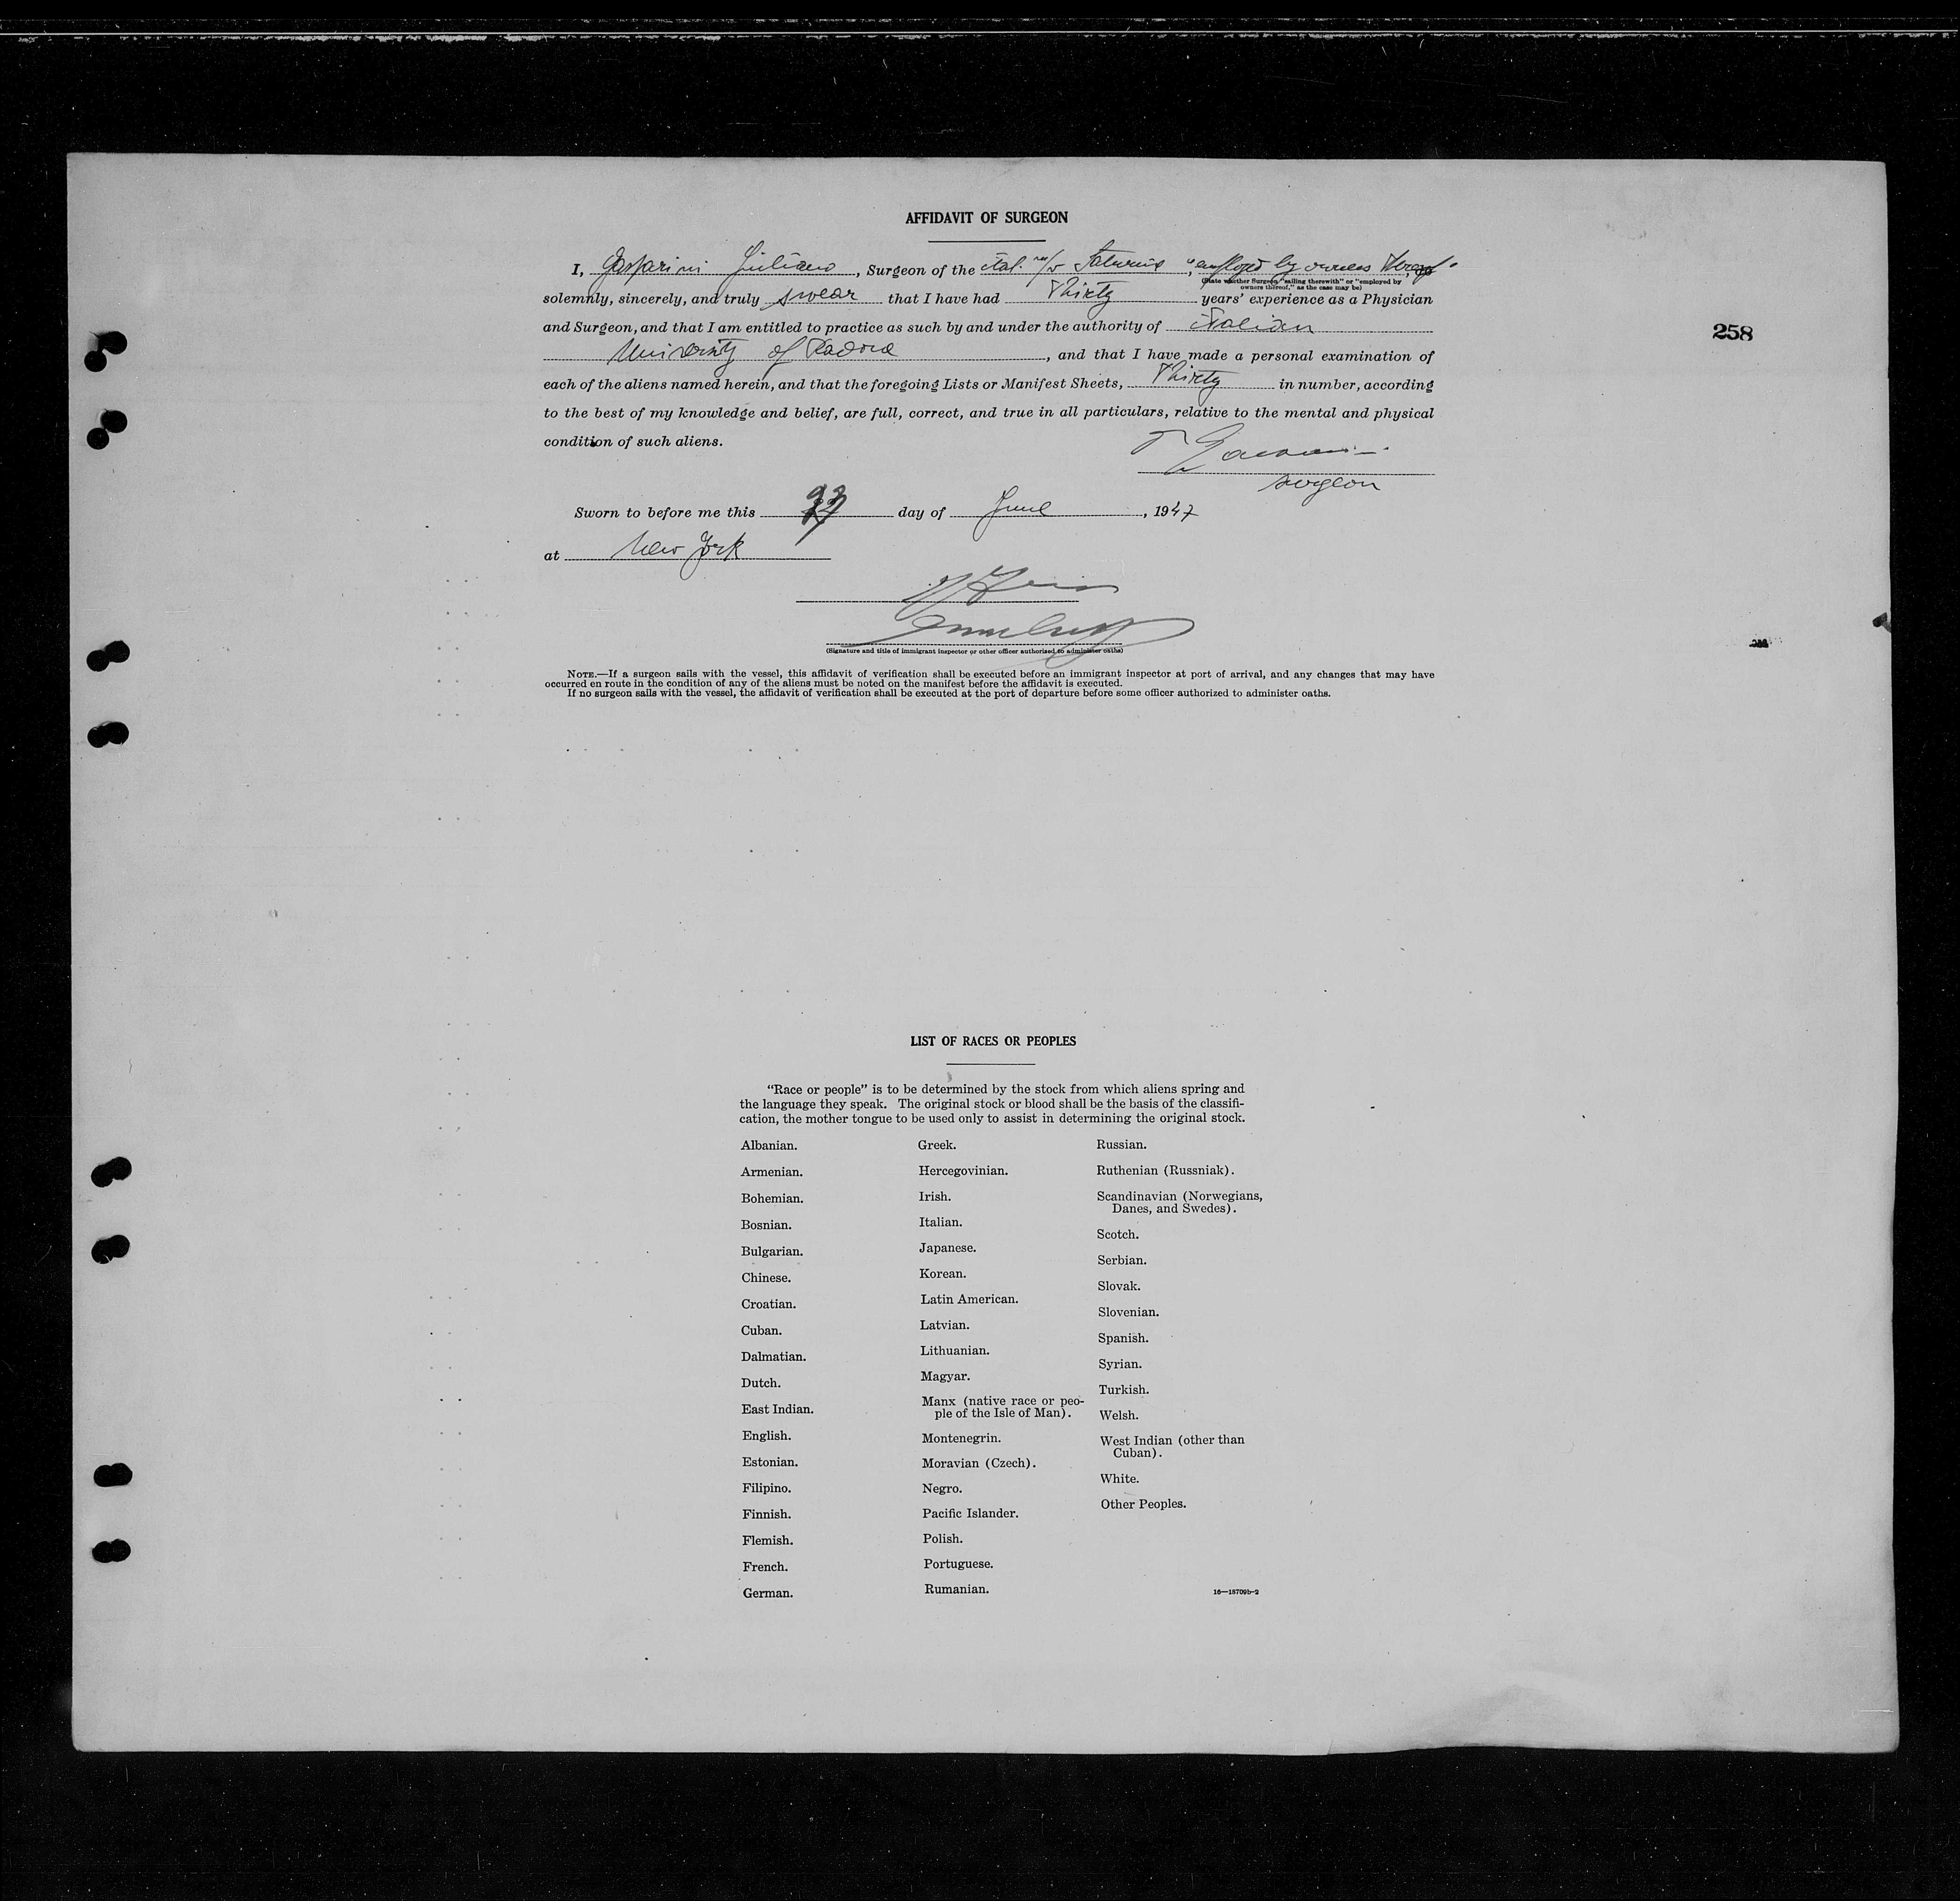 AFFIDAVIT OF SURGEON
I, Gasparini Giuliano, Surgeon of the ital. m/v Saturnia, "employed by owners thereof"
(State whether Surgeon "sailing therewith" or "employed by
owners thereof," as the case may be)
solemnly, sincerely, and truly swear that I have had Thirty years' experience as a Physician
and Surgeon, and that I am entitled to practice as such by and under the authority of Italian
258
University of Padova, and that I have made a personal examination of
each of the aliens named herein, and that the foregoing Lists or Manifest Sheets, Thirty in number, according
to the best of my knowledge and belief, are full, correct, and true in all particulars, relative to the mental and physical
condition of such aliens.
surgeon
Sworn to before me this day of June, 1947
at New York
(Signature and title of immigrant inspector or other officer authorized to administer oaths)
NOTE.—If a surgeon sails with the vessel, this affidavit of verification shall be executed before an immigrant inspector at port of arrival, and any changes that may have
occurred en route in the condition of any of the aliens must be noted on the manifest before the affidavit is executed.
If no surgeon sails with the vessel, the affidavit of verification shall be executed at the port of departure before some officer authorized to administer oaths.
LIST OF RACES OR PEOPLES
"Race or people" is to be determined by the stock from which aliens spring and
the language they speak. The original stock or blood shall be the basis of the classifi-
cation, the mother tongue to be used only to assist in determining the original stock.
Albanian.
Armenian.
Bohemian.
Bosnian.
Bulgarian.
Chinese.
Croatian.
Cuban.
Dalmatian.
Dutch.
East Indian.
English.
Estonian.
Filipino.
Finnish.
Flemish.
French.
German.
Greek.
Hercegovinian.
Irish.
Italian.
Japanese.
Korean.
Latin American.
Latvian.
Lithuanian.
Magyar.
Manx (native race or peo-
ple of the Isle of Man).
Montenegrin.
Moravian (Czech).
Negro.
Pacific Islander.
Polish.
Portuguese.
Rumanian.
Russian.
Ruthenian (Russniak).
Scandinavian (Norwegians,
Danes, and Swedes).
Scotch.
Serbian.
Slovak.
Slovenian.
Spanish.
Syrian.
Turkish.
Welsh.
West Indian (other than
Cuban).
White.
Other Peoples.
16—18709b-2